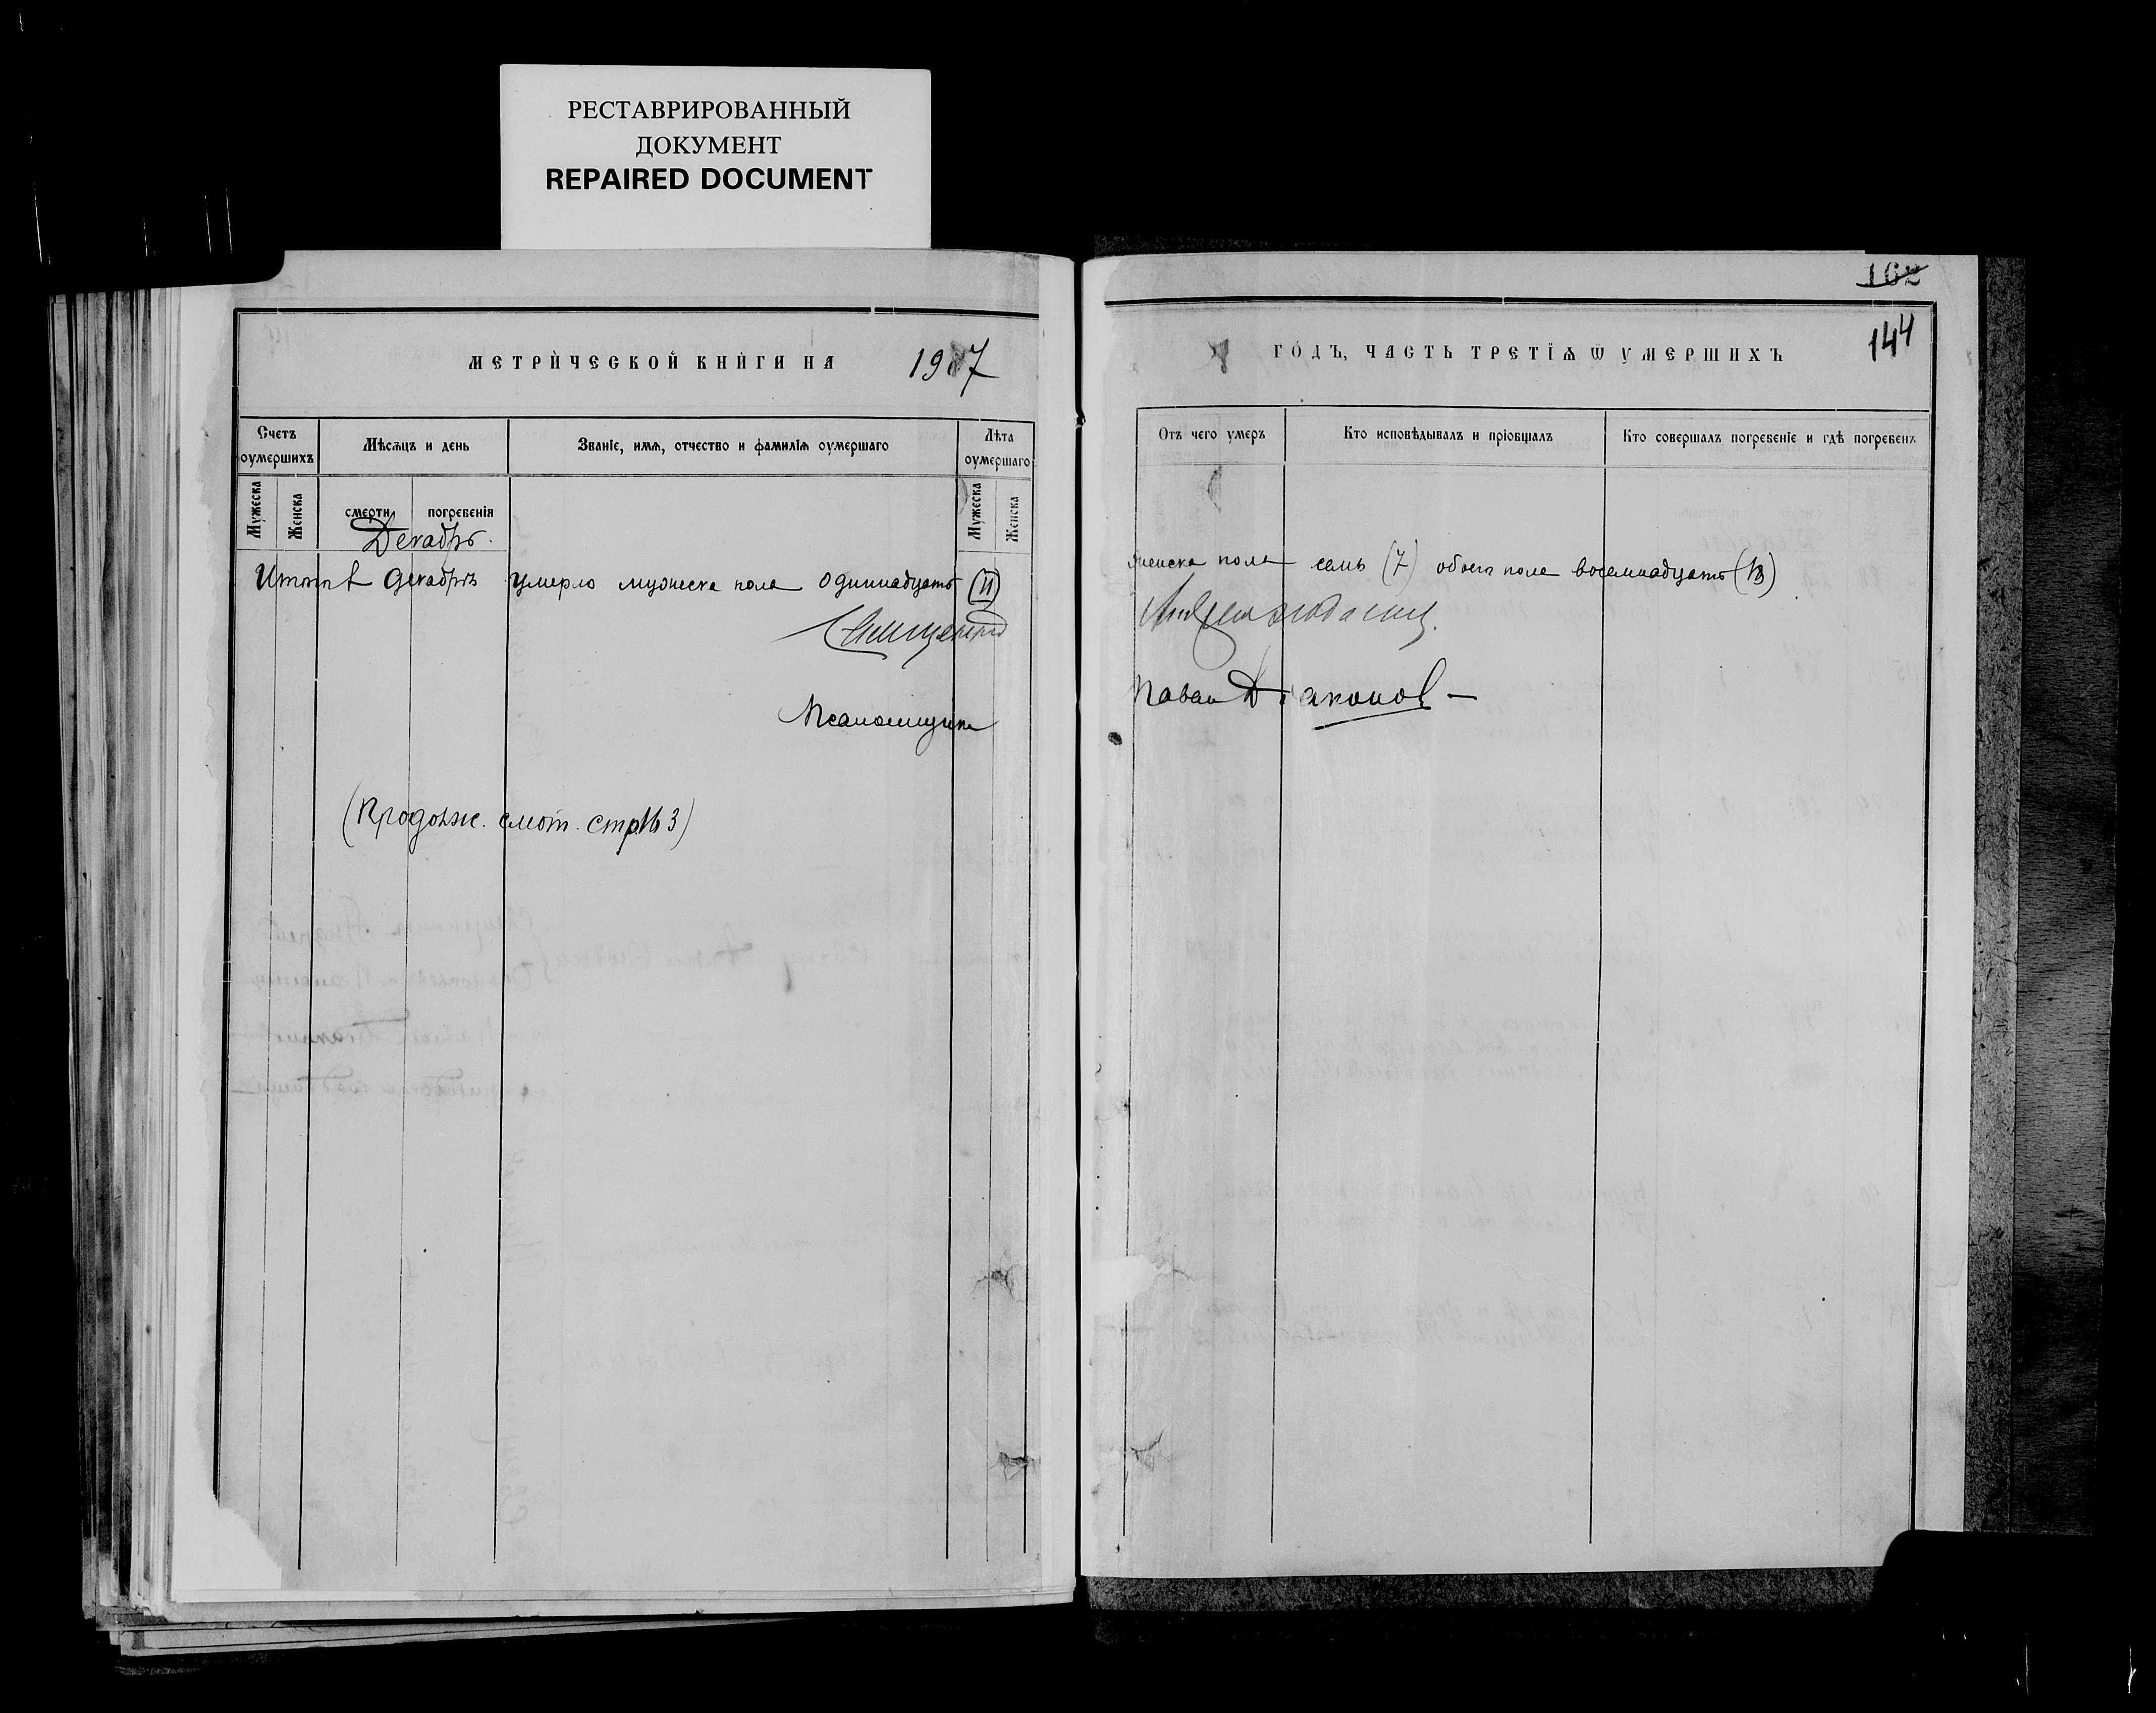 РЕСТАВРИРОВАННЫЙ
ДОКУМЕНТ
REPAIRED DOCUMENT
МЕТРИ́ЧЕСКОЙ КНИ́ГИ НА 1907
Счетъ оумершихъ
Мѣсѧцъ и день
Званіе, имѧ, отчество и фамиліѧ оумершаго
Лѣта оумершаго
Мужеска
Женска
смерти
погребенія
Мужеска
Женска
Декабрь.
Итого в декабрѣ умерло мужеска пола одиннадцать (11)
Священникъ
Псаломщикъ
(Продолж. смот. стр. 163)
162
144
ГО́ДЪ, ЧАСТЬ ТРЕТІѦ Ѿ УМЕРШИХЪ
Отъ чего умеръ
Кто исповѣдывалъ и пріобщалъ
Кто совершалъ погребеніе и гдѣ погребенъ
женска пола семь (7) обоего пола восемнадцать (18)
Павел Дьяконов